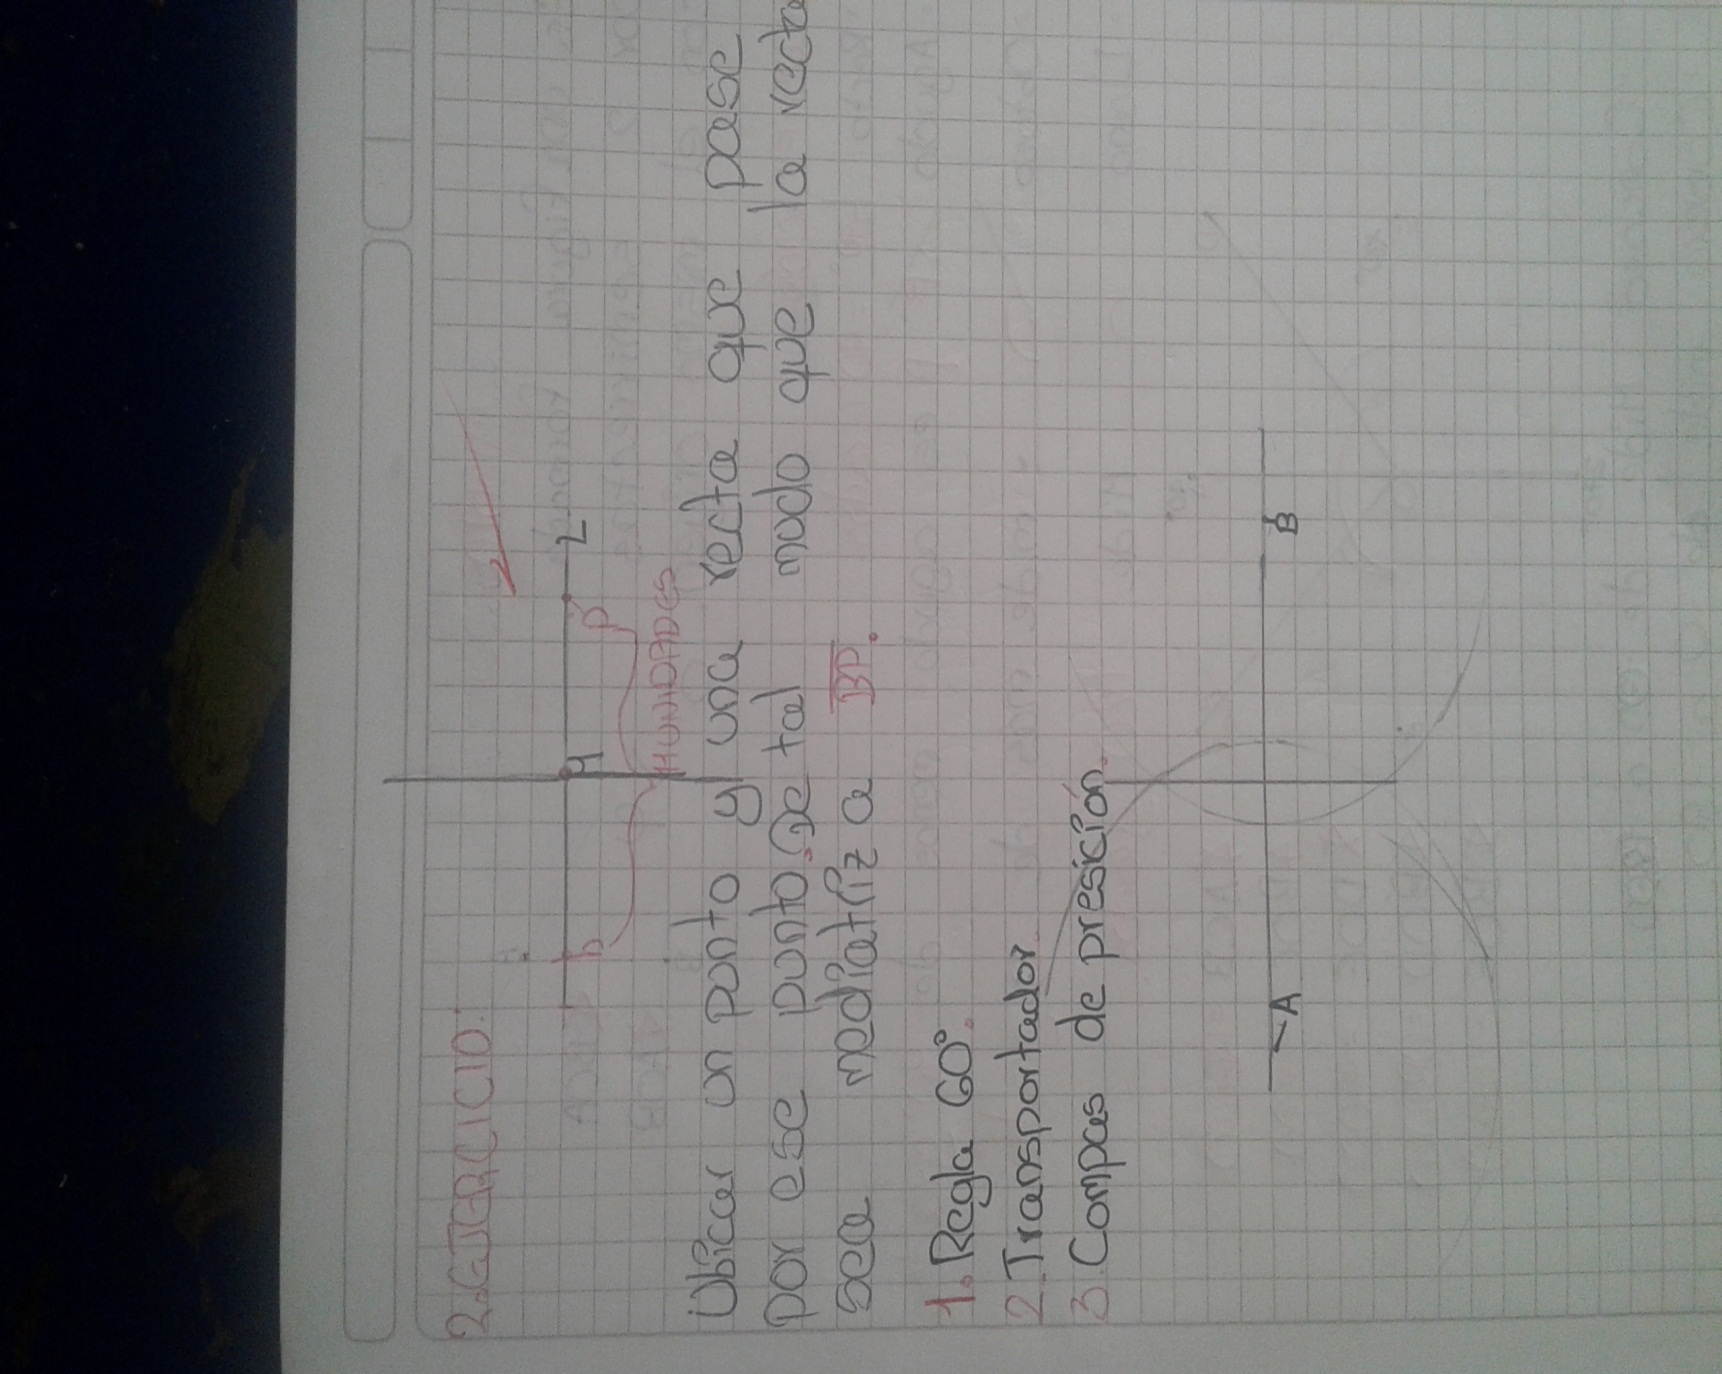 2.EJERCICIO:
L
H
P
b
4UNIDADES
Ubicar un punto y una recta que pase
por ese punto. De tal modo que la recta
sea mediatriz a BP.
1. Regla 60°.
2. Transportador.
3. Compas de presición.
A
B